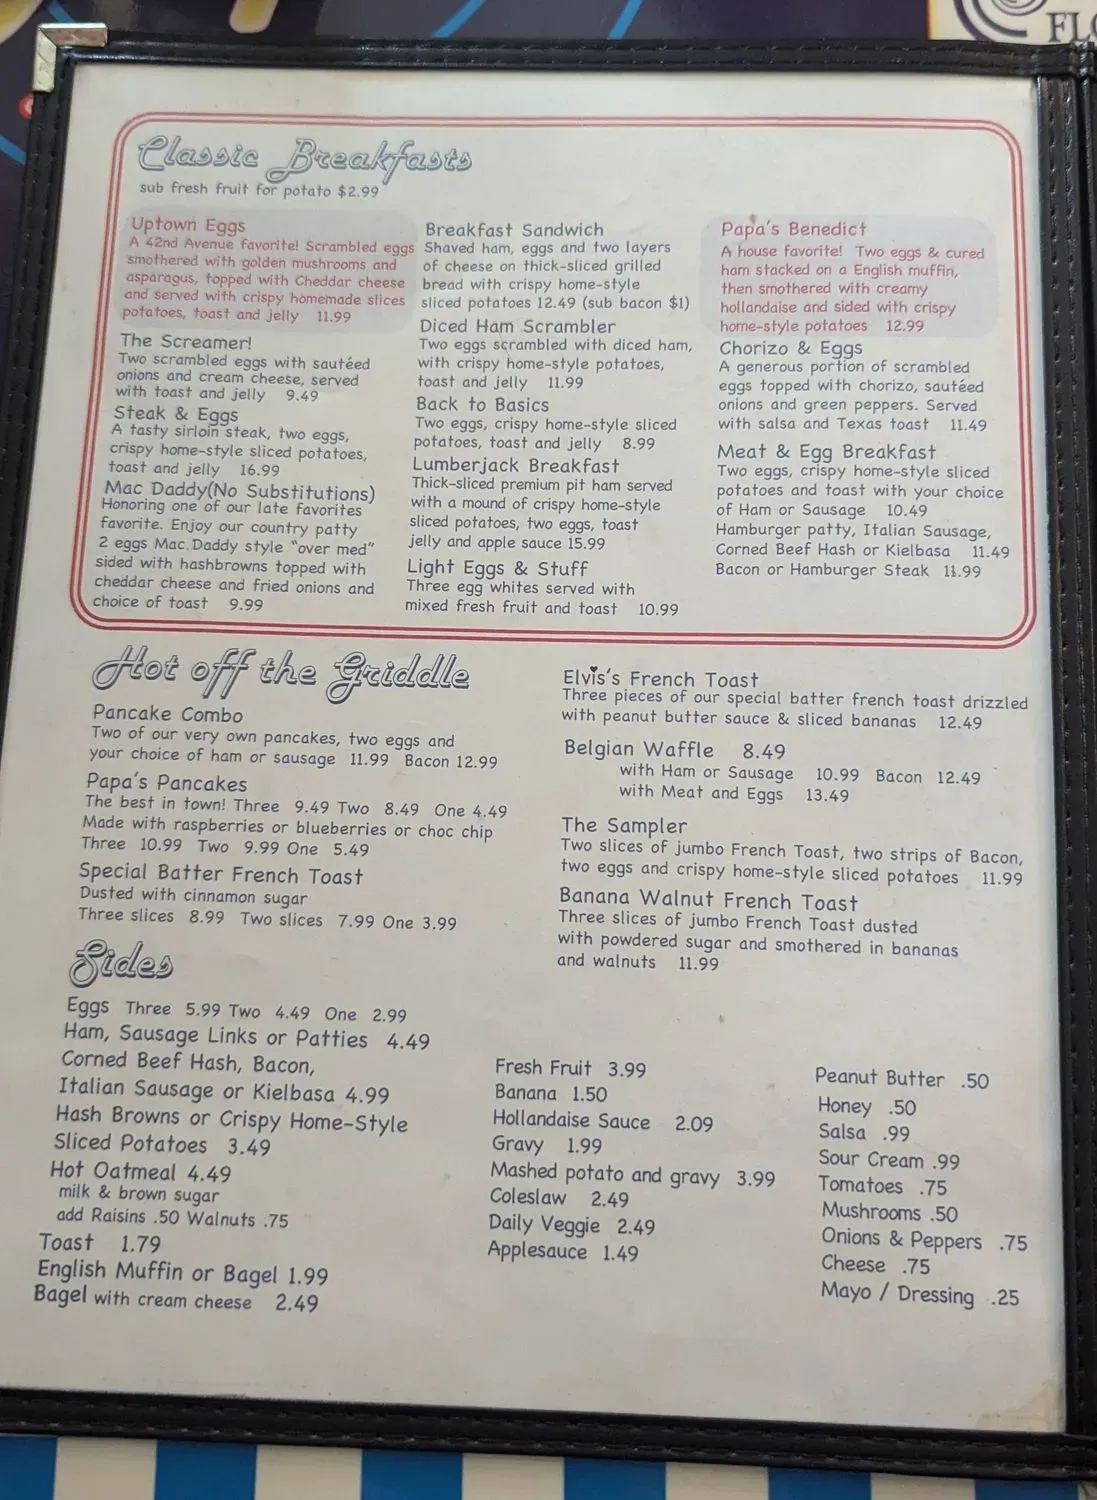 FLO
Classic Breakfasts
sub fresh fruit for potato $2.99
Uptown Eggs
A 42nd Avenue favorite! Scrambled eggs
smothered with golden mushrooms and
asparagus, topped with Cheddar cheese
and served with crispy homemade slices
potatoes, toast and jelly 11.99
The Screamer!
Two scrambled eggs with sautéed
onions and cream cheese, served
with toast and jelly 9.49
Steak & Eggs
A tasty sirloin steak, two eggs,
crispy home-style sliced potatoes,
toast and jelly 16.99
Mac Daddy(No Substitutions)
Honoring one of our late favorites
favorite. Enjoy our country patty
2 eggs Mac Daddy style "over med"
sided with hashbrowns topped with
cheddar cheese and fried onions and
choice of toast 9.99
Breakfast Sandwich
Shaved ham, eggs and two layers
of cheese on thick-sliced grilled
bread with crispy home-style
sliced potatoes 12.49 (sub bacon $1)
Diced Ham Scrambler
Two eggs scrambled with diced ham,
with crispy home-style potatoes,
toast and jelly 11.99
Back to Basics
Two eggs, crispy home-style sliced
potatoes, toast and jelly 8.99
Lumberjack Breakfast
Thick-sliced premium pit ham served
with a mound of crispy home-style
sliced potatoes, two eggs, toast
jelly and apple sauce 15.99
Light Eggs & Stuff
Three egg whites served with
mixed fresh fruit and toast 10.99
Papa's Benedict
A house favorite! Two eggs & cured
ham stacked on a English muffin,
then smothered with creamy
hollandaise and sided with crispy
home-style potatoes 12.99
Chorizo & Eggs
A generous portion of scrambled
eggs topped with chorizo, sautéed
onions and green peppers. Served
with salsa and Texas toast 11.49
Meat & Egg Breakfast
Two eggs, crispy home-style sliced
potatoes and toast with your choice
of Ham or Sausage 10.49
Hamburger patty, Italian Sausage,
Corned Beef Hash or Kielbasa 11.49
Bacon or Hamburger Steak 11.99
Hot off the Griddle
Pancake Combo
Two of our very own pancakes, two eggs and
your choice of ham or sausage 11.99 Bacon 12.99
Papa's Pancakes
The best in town! Three 9.49 Two 8.49 One 4.49
Made with raspberries or blueberries or choc chip
Three 10.99 Two 9.99 One 5.49
Special Batter French Toast
Dusted with cinnamon sugar
Three slices 8.99 Two slices 7.99 One 3.99
Elvis's French Toast
Three pieces of our special batter french toast drizzled
with peanut butter sauce & sliced bananas 12.49
Belgian Waffle 8.49
with Ham or Sausage 10.99 Bacon 12.49
with Meat and Eggs 13.49
The Sampler
Two slices of jumbo French Toast, two strips of Bacon,
two eggs and crispy home-style sliced potatoes 11.99
Banana Walnut French Toast
Three slices of jumbo French Toast dusted
with powdered sugar and smothered in bananas
and walnuts 11.99
Sides
Eggs Three 5.99 Two 4.49 One 2.99
Ham, Sausage Links or Patties 4.49
Corned Beef Hash, Bacon,
Italian Sausage or Kielbasa 4.99
Hash Browns or Crispy Home-Style
Sliced Potatoes 3.49
Hot Oatmeal 4.49
milk & brown sugar
add Raisins .50 Walnuts .75
Toast 1.79
English Muffin or Bagel 1.99
Bagel with cream cheese 2.49
Fresh Fruit 3.99
Banana 1.50
Hollandaise Sauce 2.09
Gravy 1.99
Mashed potato and gravy 3.99
Coleslaw 2.49
Daily Veggie 2.49
Applesauce 1.49
Peanut Butter .50
Honey .50
Salsa .99
Sour Cream .99
Tomatoes .75
Mushrooms .50
Onions & Peppers .75
Cheese .75
Mayo / Dressing .25